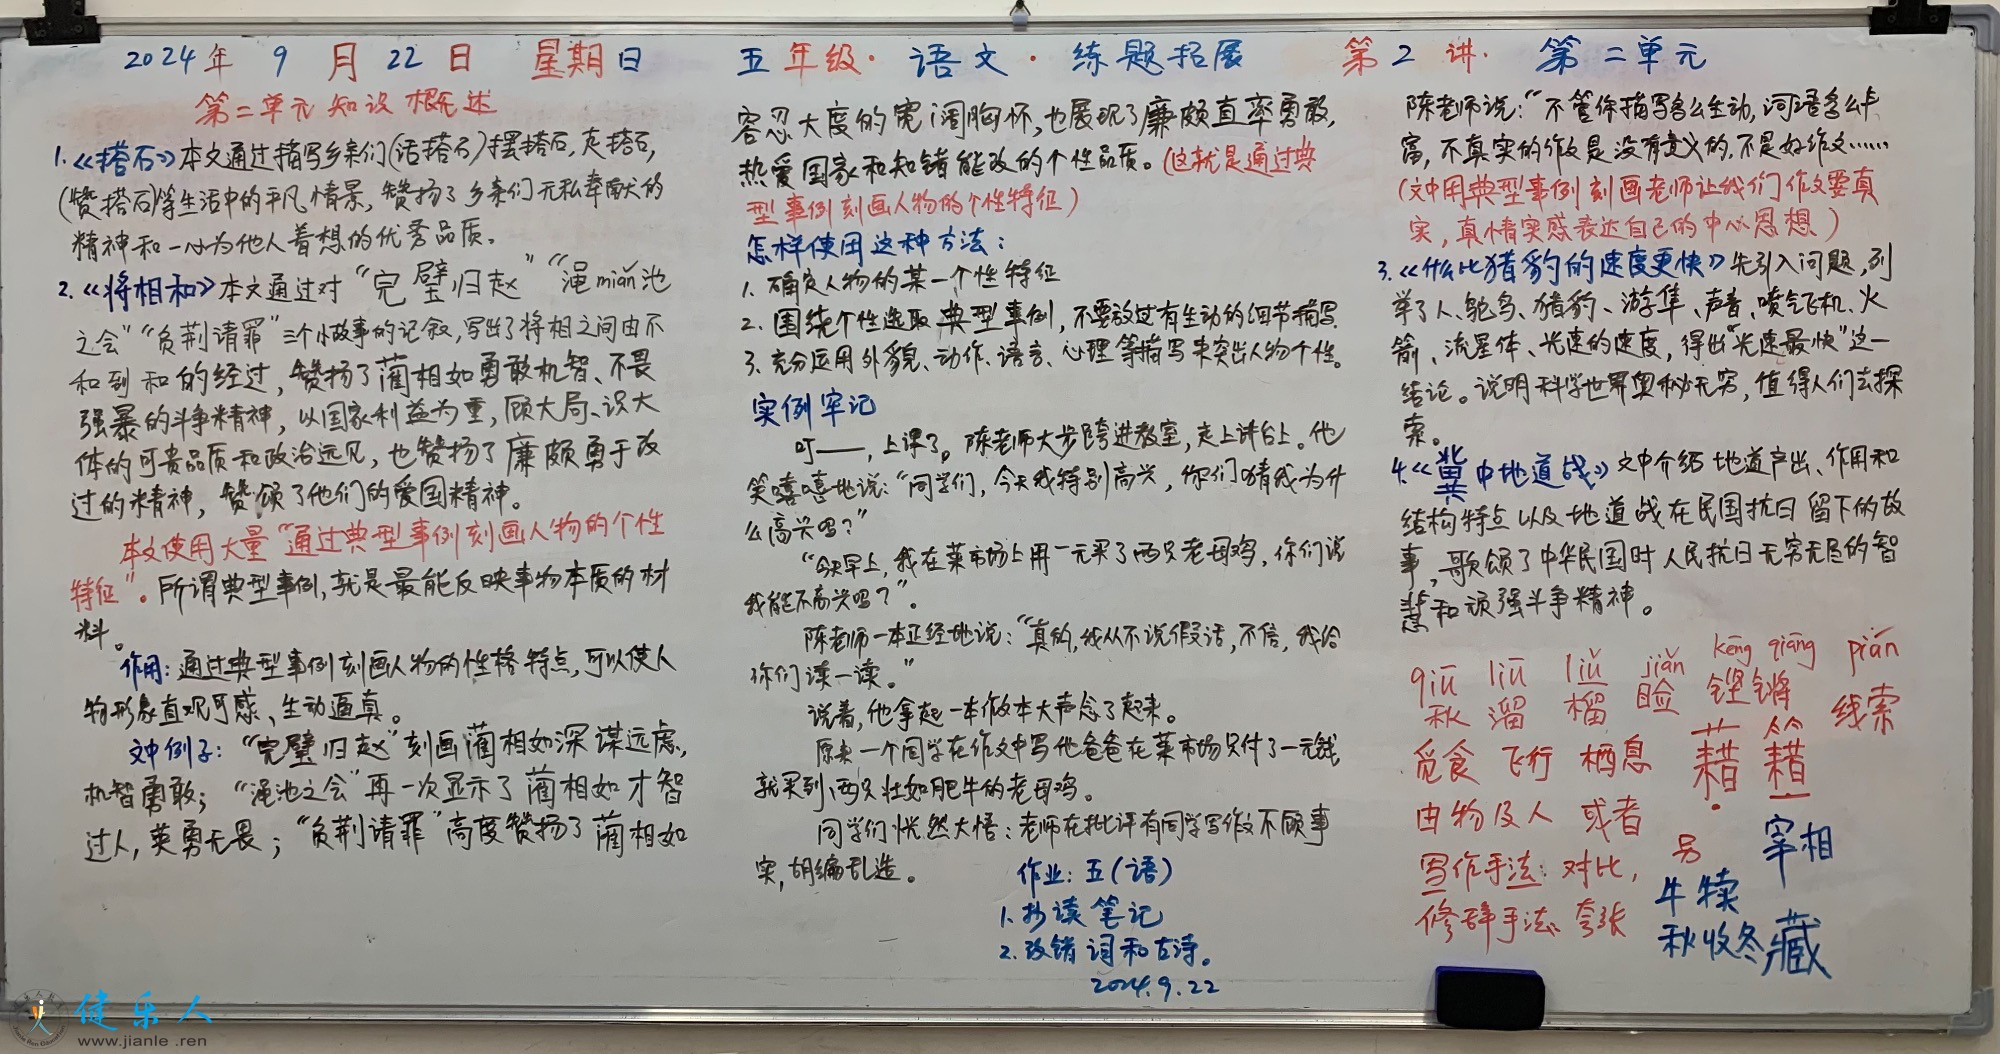 2024年 9 月 22 日 星期日 五年级·语文·练题拓展 第2讲·第二单元
第二单元知识概述
1.《搭石》本文通过描写乡亲们(话搭石)摆搭石,走搭石,
(赞搭石)等生活中的平凡情景,赞扬了乡亲们无私奉献的
精神和一心为他人着想的优秀品质。
2.《将相和》本文通过对“完璧归赵”“渑miǎn池
之会”“负荆请罪”三个小故事的记叙,写出了将相之间由不
和到和的经过,赞扬了蔺相如勇敢机智、不畏
强暴的斗争精神,以国家利益为重,顾大局、识大
体的可贵品质和政治远见,也赞扬了廉颇勇于改
过的精神,赞颂了他们的爱国精神。
本文使用大量“通过典型事例刻画人物的个性
特征”。所谓典型事例,就是最能反映事物本质的材
料。
作用:通过典型事例刻画人物的性格特点,可以使人
物形象直观可感、生动逼真。
文中例子:“完璧归赵”刻画蔺相如深谋远虑,
机智勇敢;“渑池之会”再一次显示了蔺相如才智
过人,英勇无畏;“负荆请罪”高度赞扬了蔺相如
容忍大度的宽阔胸怀,也展现了廉颇直率勇敢,
热爱国家和知错能改的个性品质。(这就是通过典
型事例刻画人物的个性特征)
怎样使用这种方法:
1.确定人物的某一个性特征
2.围绕个性选取典型事例,不要放过有生动的细节描写.
3.充分运用外貌、动作、语言、心理等描写来突出人物个性。
实例牢记
叮——,上课了。陈老师大步跨进教室,走上讲台上。他
笑嘻嘻地说:“同学们,今天我特别高兴,你们猜我为什
么高兴吗?”
“今天早上,我在菜市场上用一元买了两只老母鸡,你们说
我能不高兴吗?”。
陈老师一本正经地说:“真的,我从不说假话,不信,我给
你们读一读。”
说着,他拿起一本作文本大声念了起来。
原来一个同学在作文中写他爸爸在菜市场只付了一元钱
就买到两只壮如肥牛的老母鸡。
同学们恍然大悟:老师在批评有同学写作文不顾事
实,胡编乱造。
作业:五(语)
1.抄读笔记
2.改错词和古诗。
2024.9.22
陈老师说:“不管你描写多么生动,词语多么丰
富,不真实的作文是没有意义的,不是好作文……
(文中用典型事例刻画老师让我们作文要真
实,真情实感表达自己的中心思想)
3.《什么比猎豹的速度更快》先引入问题,列
举了人、鸵鸟、猎豹、游隼、声音、喷气飞机、火
箭、流星体、光速的速度,得出“光速最快”这一
结论。说明科学世界奥秘无穷,值得人们去探
索。
4.《冀中地道战》文中介绍地道产出、作用和
结构特点以及地道战在民国抗日留下的故
事,歌颂了中华民国时人民抗日无穷无尽的智
慧和顽强斗争精神。
qiū liū liú jiǎn kēng qiāng piǎn
秋 溜 榴 睑 铿锵 线索
觅食 飞行 栖息 藉 籍
由物及人 或者
写作手法:对比, 另 宰相
修辞手法:夸张 牛犊
秋收冬藏
健乐人
www.jianle.ren